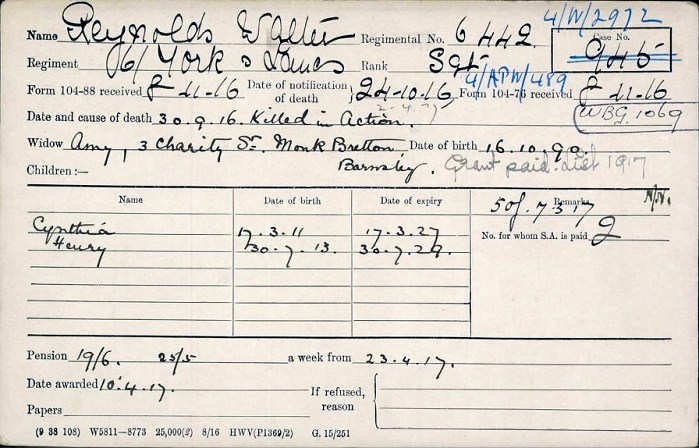 4/W/2972
Name Reynolds Walter Regimental No. 6442 Case No. 945
Regiment 6/ York & Lancs Rank Sgt 4/APW/489
Form 104-88 received 8-11-16 Date of notification of death } 24-10-16 Form 104-76 received 8-11-16
WBG. 1069
Date and cause of death 30.9.16. Killed in Action.
Widow Amy, 3 Charity St. Monk Bretton Date of birth 16.10.90.
Children :— Barnsley. Grant paid. 1917
Name Date of birth Date of expiry Remarks
50/. 7 3 17
No. for whom S.A. is paid 2
Cynthia 17.3.11 17.3.27
Henry 30.7.13. 30.7.29.
Pension 19/6. 25/5 a week from 23.4.17.
Date awarded 10.4.17. If refused, reason
Papers
(9 38 108) W5811—8773 25,000(2) 8/16 HWV(P1369/2) G. 15/251